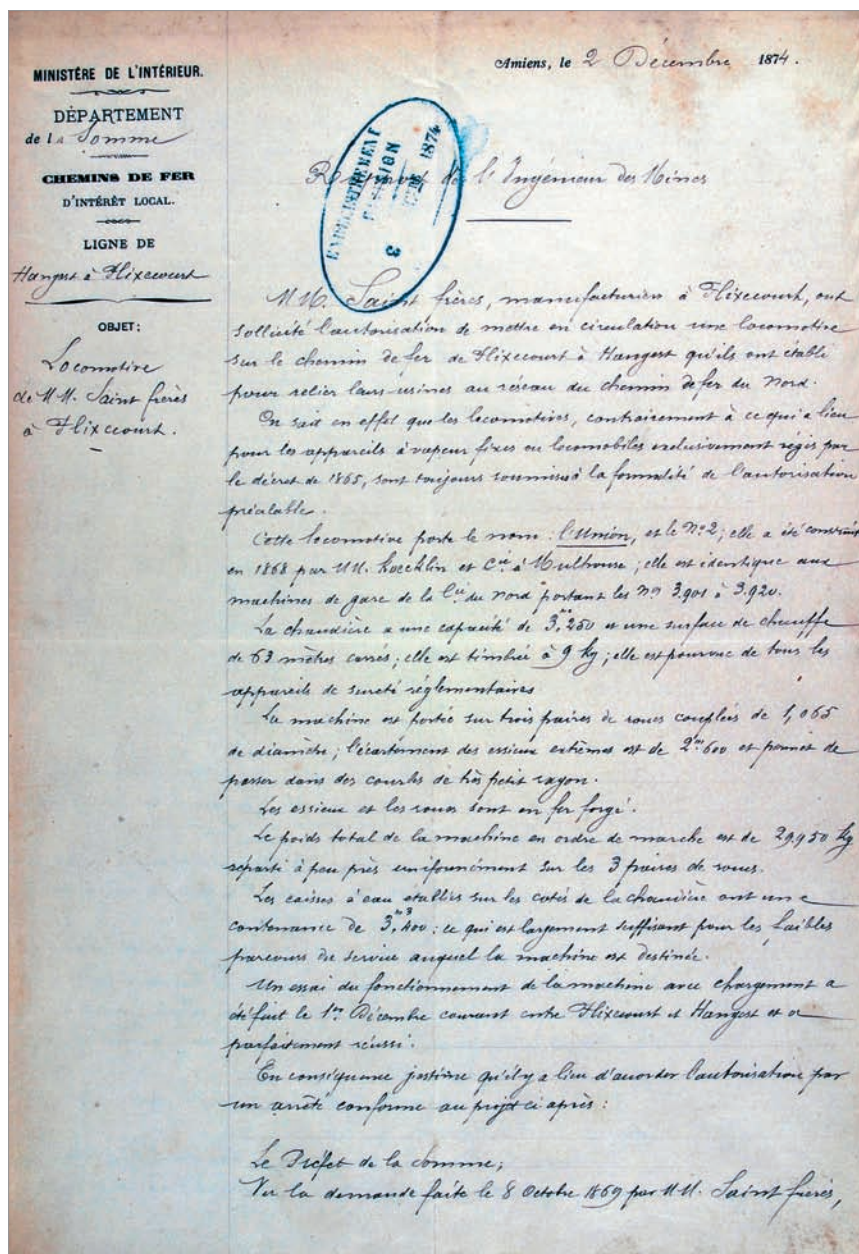 MINISTÈRE DE L'INTÉRIEUR.
DÉPARTEMENT
de la Somme
CHEMINS DE FER
D'INTÉRÊT LOCAL.
LIGNE DE
Hangest à Flixecourt
OBJET:
Locomotive
de MM. Saint frères
à Flixecourt.
Amiens, le 2 Décembre 1874.
ENREGISTREMENT
DIVISION
1874
3
Rapport de l'Ingénieur des Mines
MM. Saint frères, manufacturiers à Flixecourt, ont
sollicité l'autorisation de mettre en circulation une locomotive
sur le chemin de fer de Flixecourt à Hangest qu'ils ont établi
pour relier leurs usines au réseau du chemin de fer du Nord.
On sait en effet que les locomotives, contrairement à ce qui a lieu
pour les appareils à vapeur fixes ou locomobiles exclusivement régis par
le décret de 1865, sont toujours soumises à la formalité de l'autorisation
préalable.
Cette locomotive porte le nom : l'Union, et le No 2; elle a été construite
en 1868 par MM. Koechlin et Cie à Mulhouse; elle est identique aux
machines de gare de la Cie du Nord portant les Nos 3.901 à 3.920.
La chaudière a une capacité de 3,m3 250 et une surface de chauffe
de 63 mètres carrés; elle est timbrée à 9 kg; elle est pourvue de tous les
appareils de sureté réglementaires
La machine est portée sur trois paires de roues couplées de 1,065
de diamètre; l'écartement des essieux extrêmes est de 2m 600 et permet de
passer dans des courbes de très petit rayon.
Les essieux et les roues sont en fer forgé.
Le poids total de la machine en ordre de marche est de 29,950 kg
réparti à peu près uniformément sur les 3 paires de roues.
Les caisses à eau établies sur les cotés de la chaudière ont une
contenance de 3,m3 400; ce qui est largement suffisant pour les faibles
parcours du service auquel la machine est destinée.
Un essai du fonctionnement de la machine avec chargement a
été fait le 1er Décembre courant entre Flixecourt et Hangest et a
parfaitement réussi.
En conséquence j'estime qu'il y a lieu d'accorder l'autorisation par
un arrêté conforme au projet ci après :
Le Préfet de la Somme;
Vu la demande faite le 8 Octobre 1869 par MM. Saint frères,